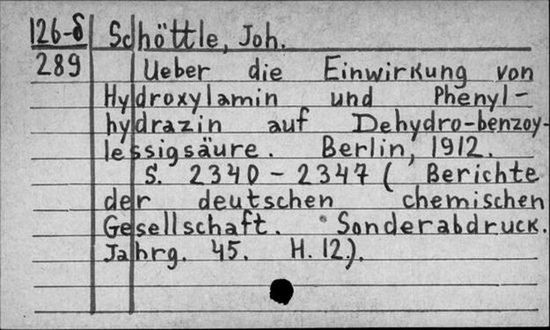 126-δ Schöttle, Joh.
289 Ueber die Einwirkung von
Hydroxylamin und Phenyl-
hydrazin auf Dehydro-benzoy-
lessigsäure. Berlin, 1912.
S. 2340-2347 ( Berichte
der deutschen chemischen
Gesellschaft. Sonderabdruck.
Jahrg. 45. H. 12.).